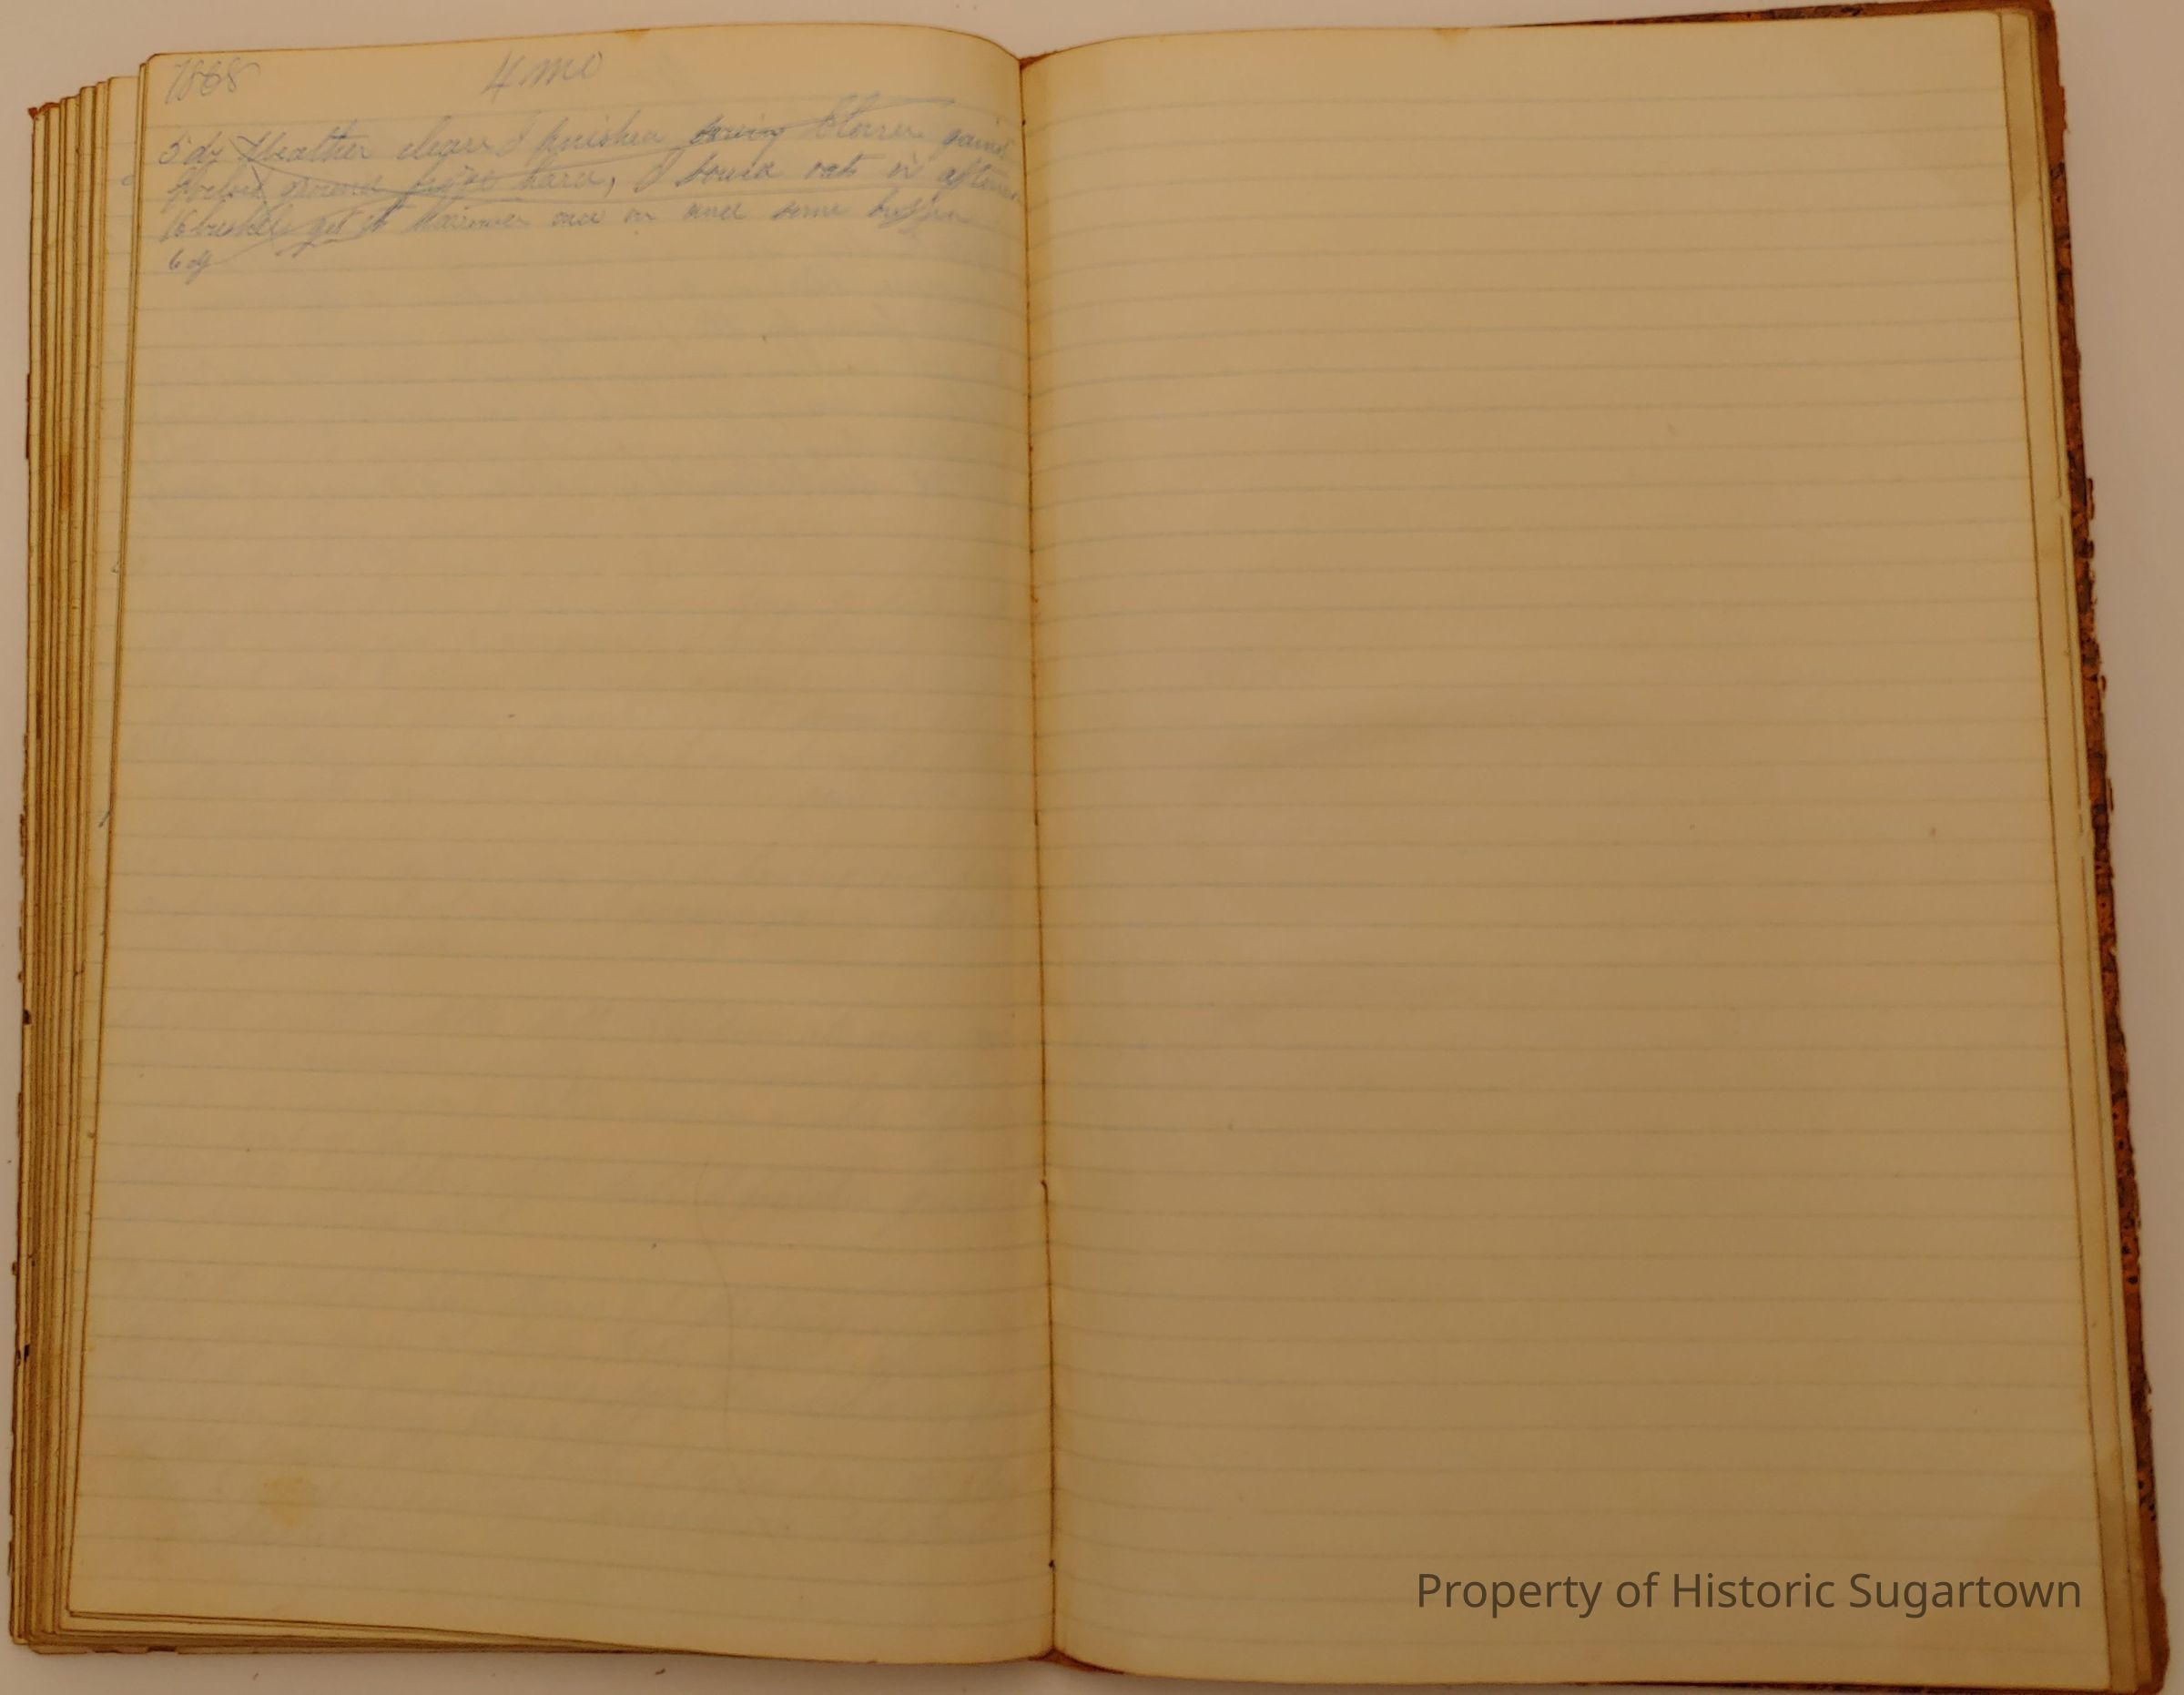 1868 4 mo
5 dy Weather clear I finished sowing Clover
ground froze hard, I sowed oats in
16 bushels got it once on and some
6 dy
Property of Historic Sugartown